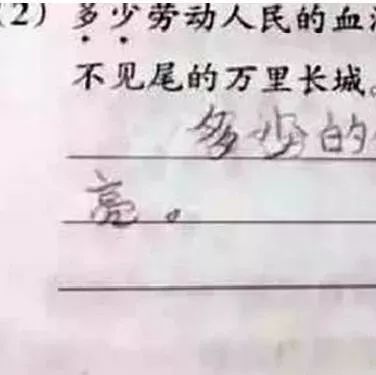 (2) 多少劳动人民的血
不见尾的万里长城。
多少的
亮。